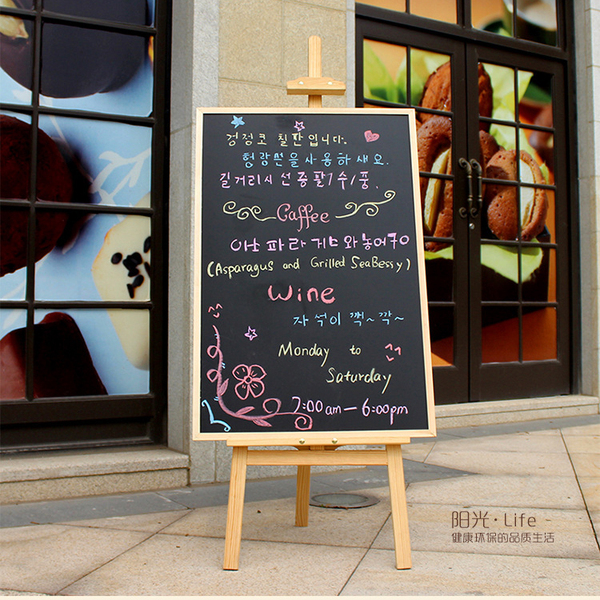 검정코 칠판입니다.
형광펜을사용하새요.
길거리시선종팔1수1품.
Caffee
(Asparagus and Grilled SeaBessy)
Wine
자석이 찍~각~
Monday to
Saturday
7:00am—6:00pm
阳光·Life -
健康环保的品质生活